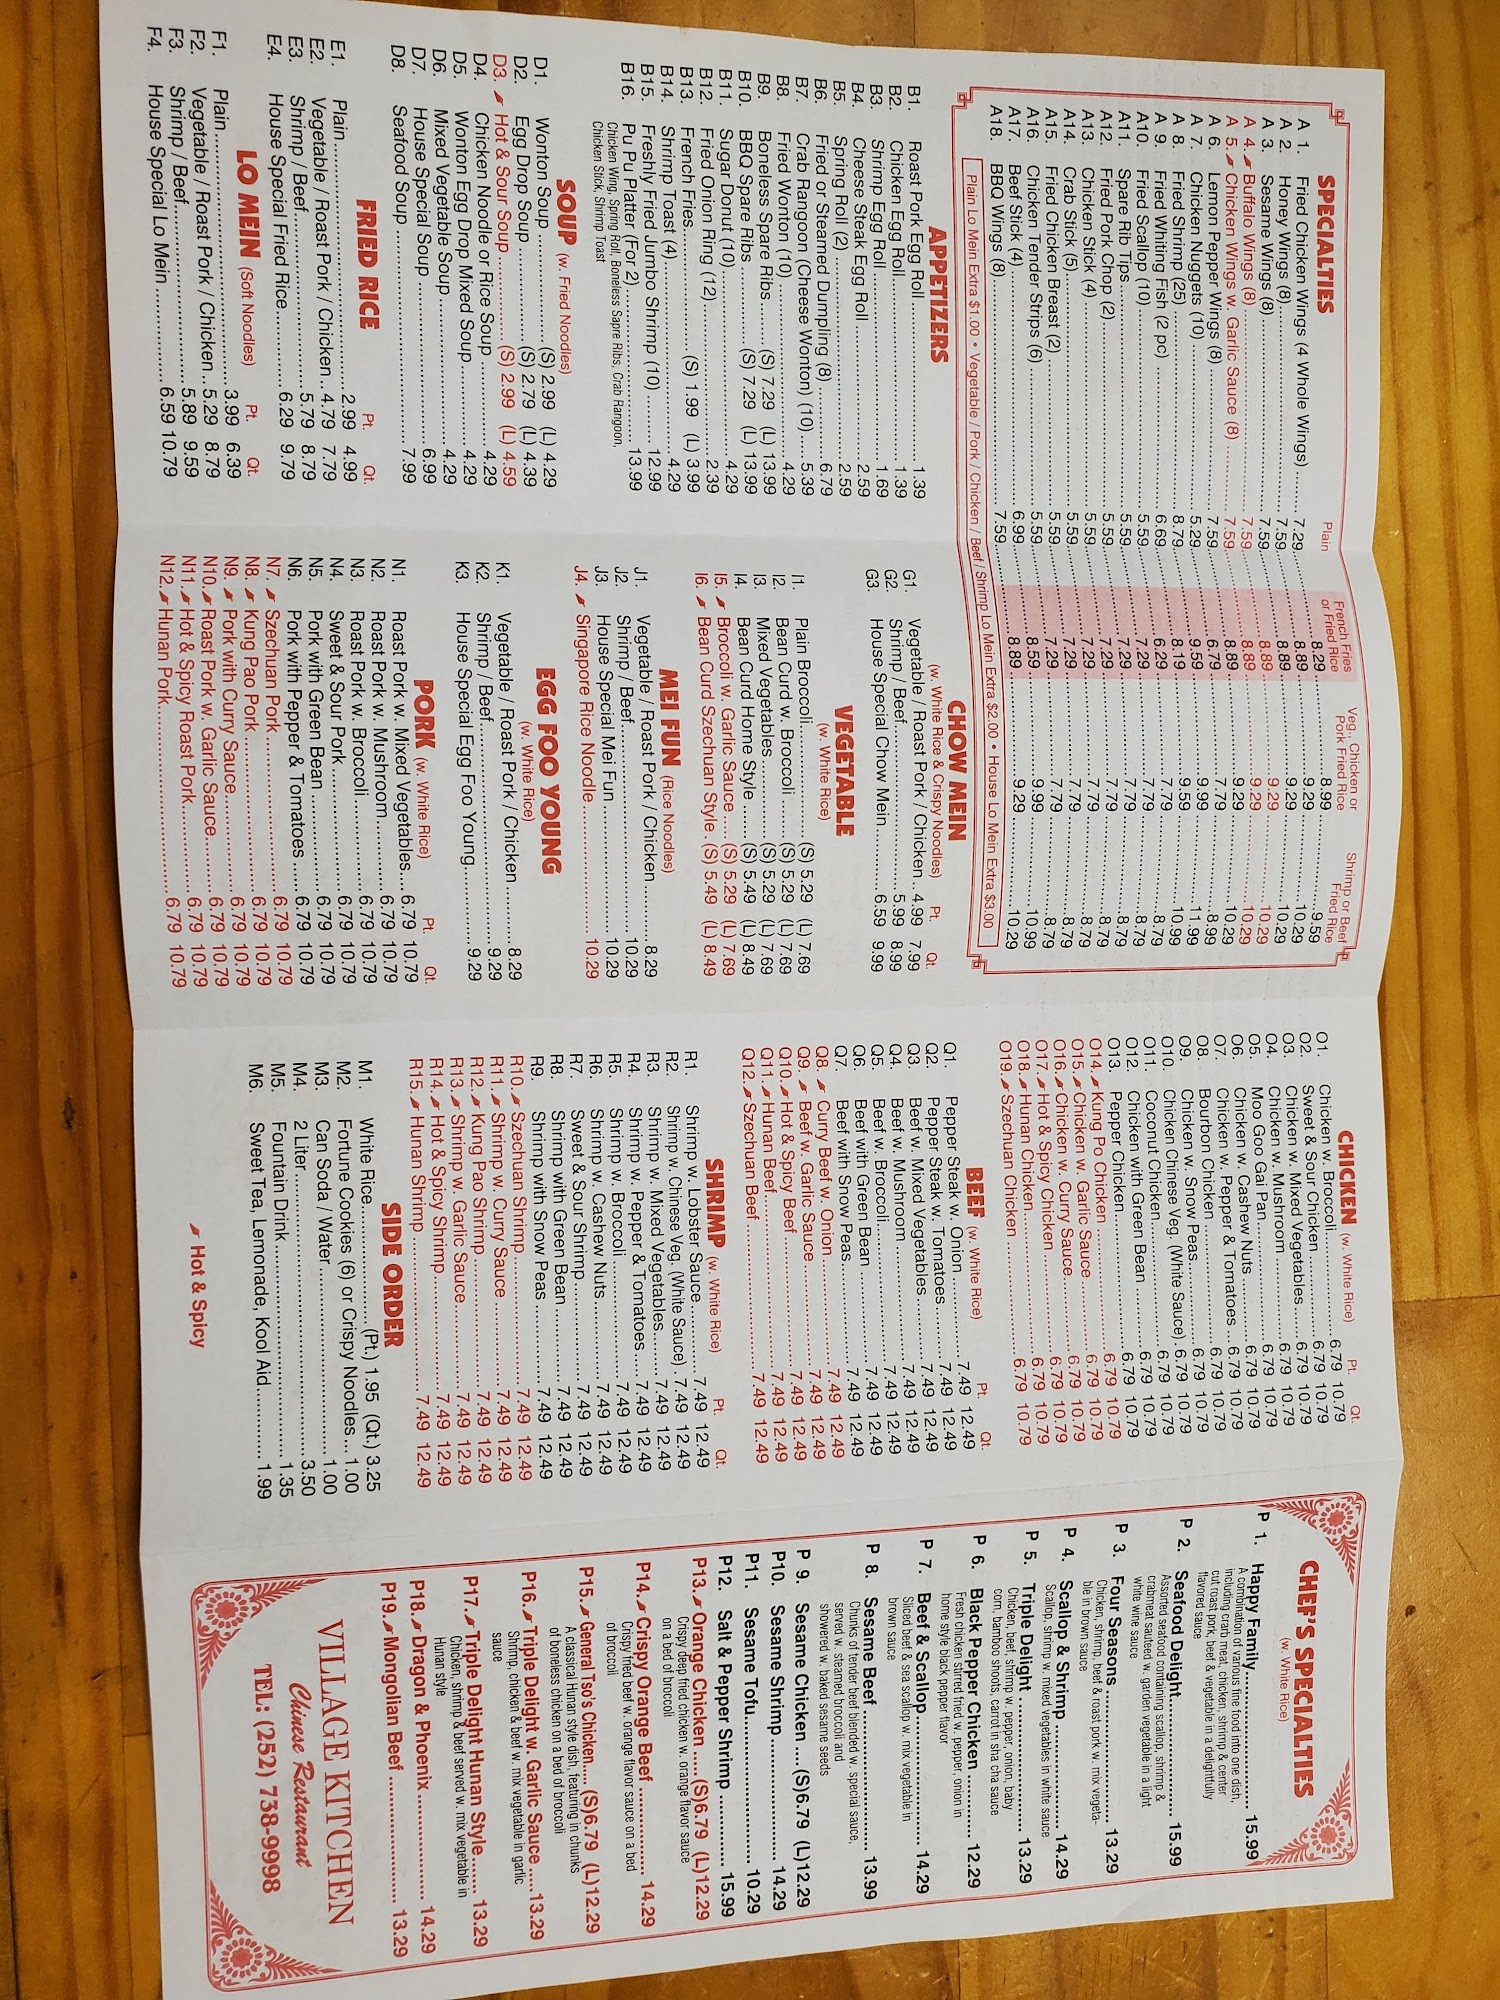 SPECIALTIES
Plain
French Fries or Fried Rice
Veg., Chicken or Pork Fried Rice
Shrimp or Beef Fried Rice
A 1. Fried Chicken Wings (4 Whole Wings) 7.29 8.29 8.99 9.59
A 2. Honey Wings (8) 7.59 8.89 9.29 10.29
A 3. Sesame Wings (8) 7.59 8.89 9.29 10.29
A 4. Buffalo Wings (8) 7.59 8.89 9.29 10.29
A 5. Chicken Wings w. Garlic Sauce (8) 7.59 8.89 9.29 10.29
A 6. Lemon Pepper Wings (8) 7.59 8.89 9.29 10.29
A 7. Chicken Nuggets (10) 5.29 6.79 7.79 8.99
A 8. Fried Shrimp (25) 8.79 9.59 9.99 11.99
A 9. Fried Whiting Fish (2 pc) 6.69 8.19 9.59 10.99
A10. Fried Scallop (10) 5.59 6.29 7.79 8.79
A11. Spare Rib Tips 5.59 7.29 7.79 8.79
A12. Fried Pork Chop (2) 5.59 7.29 7.79 8.79
A13. Chicken Stick (4) 5.59 7.29 7.79 8.79
A14. Crab Stick (5) 5.59 7.29 7.79 8.79
A15. Fried Chicken Breast (2) 5.59 7.29 7.79 8.79
A16. Chicken Tender Strips (6) 5.59 7.29 7.79 8.79
A17. Beef Stick (4) 6.99 8.59 9.99 10.99
A18. BBQ Wings (8) 7.59 8.89 9.29 10.29
Plain Lo Mein Extra $1.00 • Vegetable / Pork / Chicken / Beef / Shrimp Lo Mein Extra $2.00 • House Lo Mein Extra $3.00
APPETIZERS
B1. Roast Pork Egg Roll 1.39
B2. Chicken Egg Roll 1.39
B3. Shrimp Egg Roll 1.69
B4. Cheese Steak Egg Roll 2.59
B5. Spring Roll (2) 2.59
B6. Fried or Steamed Dumpling (8) 6.79
B7. Crab Rangoon (Cheese Wonton) (10) 5.39
B8. Fried Wonton (10) 4.29
B9. Boneless Spare Ribs (S) 7.29 (L) 13.99
B10. BBQ Spare Ribs (S) 7.29 (L) 13.99
B11. Sugar Donut (10) 4.29
B12. Fried Onion Ring (12) 2.39
B13. French Fries (S) 1.99 (L) 3.99
B14. Shrimp Toast (4) 4.29
B15. Freshly Fried Jumbo Shrimp (10) 12.99
B16. Pu Pu Platter (For 2) 13.99
Chicken Wing, Spring Roll, Boneless Sapre Ribs, Crab Rangoon,
Chicken Stick, Shrimp Toast
SOUP (w. Fried Noodles)
D1. Wonton Soup (S) 2.99 (L) 4.29
D2. Egg Drop Soup (S) 2.79 (L) 4.39
D3. Hot & Sour Soup (S) 2.99 (L) 4.59
D4. Chicken Noodle or Rice Soup 4.29
D5. Wonton Egg Drop Mixed Soup 4.29
D6. Mixed Vegetable Soup 4.29
D7. House Special Soup 6.99
D8. Seafood Soup 7.99
FRIED RICE Pt. Qt.
E1. Plain 2.99 4.99
E2. Vegetable / Roast Pork / Chicken 4.79 7.79
E3. Shrimp / Beef 5.79 8.79
E4. House Special Fried Rice 6.29 9.79
LO MEIN (Soft Noodles) Pt. Qt.
F1. Plain 3.99 6.39
F2. Vegetable / Roast Pork / Chicken 5.29 8.79
F3. Shrimp / Beef 5.89 9.59
F4. House Special Lo Mein 6.59 10.79
CHOW MEIN
(w. White Rice & Crispy Noodles) Pt. Qt.
G1. Vegetable / Roast Pork / Chicken 4.99 7.99
G2. Shrimp / Beef 5.99 8.99
G3. House Special Chow Mein 6.59 9.99
VEGETABLE
(w. White Rice)
I1. Plain Broccoli (S) 5.29 (L) 7.69
I2. Bean Curd w. Broccoli (S) 5.29 (L) 7.69
I3. Mixed Vegetables (S) 5.29 (L) 7.69
I4. Bean Curd Home Style (S) 5.49 (L) 8.49
I5. Broccoli w. Garlic Sauce (S) 5.29 (L) 7.69
I6. Bean Curd Szechuan Style (S) 5.49 (L) 8.49
MEI FUN (Rice Noodles)
J1. Vegetable / Roast Pork / Chicken 8.29
J2. Shrimp / Beef 10.29
J3. House Special Mei Fun 10.29
J4. Singapore Rice Noodle 10.29
EGG FOO YOUNG
(w. White Rice)
K1. Vegetable / Roast Pork / Chicken 8.29
K2. Shrimp / Beef 9.29
K3. House Special Egg Foo Young 9.29
PORK (w. White Rice) Pt. Qt.
N1. Roast Pork w. Mixed Vegetables 6.79 10.79
N2. Roast Pork w. Mushroom 6.79 10.79
N3. Roast Pork w. Broccoli 6.79 10.79
N4. Sweet & Sour Pork 6.79 10.79
N5. Pork with Green Bean 6.79 10.79
N6. Pork with Pepper & Tomatoes 6.79 10.79
N7. Szechuan Pork 6.79 10.79
N8. Kung Pao Pork 6.79 10.79
N9. Pork with Curry Sauce 6.79 10.79
N10. Roast Pork w. Garlic Sauce 6.79 10.79
N11. Hot & Spicy Roast Pork 6.79 10.79
N12. Hunan Pork 6.79 10.79
CHICKEN (w. White Rice) Pt. Qt.
O1. Chicken w. Broccoli 6.79 10.79
O2. Sweet & Sour Chicken 6.79 10.79
O3. Chicken w. Mixed Vegetables 6.79 10.79
O4. Chicken w. Mushroom 6.79 10.79
O5. Moo Goo Gai Pan 6.79 10.79
O6. Chicken w. Cashew Nuts 6.79 10.79
O7. Chicken w. Pepper & Tomatoes 6.79 10.79
O8. Bourbon Chicken 6.79 10.79
O9. Chicken w. Snow Peas 6.79 10.79
O10. Chicken Chinese Veg. (White Sauce) 6.79 10.79
O11. Coconut Chicken 6.79 10.79
O12. Chicken with Green Bean 6.79 10.79
O13. Pepper Chicken 6.79 10.79
O14. Kung Po Chicken 6.79 10.79
O15. Chicken w. Garlic Sauce 6.79 10.79
O16. Chicken w. Curry Sauce 6.79 10.79
O17. Hot & Spicy Chicken 6.79 10.79
O18. Hunan Chicken 6.79 10.79
O19. Szechuan Chicken 6.79 10.79
BEEF (w. White Rice) Pt. Qt.
Q1. Pepper Steak w. Onion 7.49 12.49
Q2. Pepper Steak w. Tomatoes 7.49 12.49
Q3. Beef w. Mixed Vegetables 7.49 12.49
Q4. Beef w. Mushroom 7.49 12.49
Q5. Beef w. Broccoli 7.49 12.49
Q6. Beef with Green Bean 7.49 12.49
Q7. Beef with Snow Peas 7.49 12.49
Q8. Curry Beef w. Onion 7.49 12.49
Q9. Beef w. Garlic Sauce 7.49 12.49
Q10. Hot & Spicy Beef 7.49 12.49
Q11. Hunan Beef 7.49 12.49
Q12. Szechuan Beef 7.49 12.49
SHRIMP (w. White Rice) Pt. Qt.
R1. Shrimp w. Lobster Sauce 7.49 12.49
R2. Shrimp w. Chinese Veg. (White Sauce) 7.49 12.49
R3. Shrimp w. Mixed Vegetables 7.49 12.49
R4. Shrimp w. Pepper & Tomatoes 7.49 12.49
R5. Shrimp w. Broccoli 7.49 12.49
R6. Shrimp w. Cashew Nuts 7.49 12.49
R7. Sweet & Sour Shrimp 7.49 12.49
R8. Shrimp with Green Bean 7.49 12.49
R9. Shrimp with Snow Peas 7.49 12.49
R10. Szechuan Shrimp 7.49 12.49
R11. Shrimp w. Curry Sauce 7.49 12.49
R12. Kung Pao Shrimp 7.49 12.49
R13. Shrimp w. Garlic Sauce 7.49 12.49
R14. Hot & Spicy Shrimp 7.49 12.49
R15. Hunan Shrimp 7.49 12.49
SIDE ORDER
M1. White Rice (Pt.) 1.95 (Qt.) 3.25
M2. Fortune Cookies (6) or Crispy Noodles 1.00
M3. Can Soda / Water 1.00
M4. 2 Liter 3.50
M5. Fountain Drink 1.35
M6. Sweet Tea, Lemonade, Kool Aid 1.99
Hot & Spicy
CHEF'S SPECIALTIES
(w. White Rice)
P 1. Happy Family 15.99
A combination of various fine food into one dish,
including crab meat, chicken, shrimp & center
cut roast pork, beef & vegetable in a delightfully
flavored sauce
P 2. Seafood Delight 15.99
Assorted seafood containing scallop, shrimp &
crabmeat sauteed w. garden vegetable in a light
white wine sauce
P 3. Four Seasons 13.29
Chicken, shrimp, beef & roast pork w. mix vegeta-
ble in brown sauce
P 4. Scallop & Shrimp 14.29
Scallop, shrimp w. mixed vegetables in white sauce
P 5. Triple Delight 13.29
Chicken, beef, shrimp w. pepper, onion, baby
corn, bamboo shoots, carrot in sha cha sauce
P 6. Black Pepper Chicken 12.29
Fresh chicken stirred fried w. pepper, onion in
home style black pepper flavor
P 7. Beef & Scallop 14.29
Sliced beef & sea scallop w. mix vegetable in
brown sauce
P 8. Sesame Beef 13.99
Chunks of tender beef blended w. special sauce,
served w. steamed broccoli and
showered w. baked sesame seeds
P 9. Sesame Chicken (S)6.79 (L)12.29
P10. Sesame Shrimp 14.29
P11. Sesame Tofu 10.29
P12. Salt & Pepper Shrimp 15.99
P13. Orange Chicken (S)6.79 (L)12.29
Crispy deep fried chicken w. orange flavor sauce
on a bed of broccoli
P14. Crispy Orange Beef 14.29
Crispy fried beef w. orange flavor sauce on a bed
of broccoli
P15. General Tso's Chicken (S)6.79 (L)12.29
A classical Hunan style dish, featuring in chunks
of boneless chicken on a bed of broccoli
P16. Triple Delight w. Garlic Sauce 13.29
Shrimp, chicken & beef w. mix vegetable in garlic
sauce
P17. Triple Delight Hunan Style 13.29
Chicken, shrimp & beef served w. mix vegetable in
Hunan style
P18. Dragon & Phoenix 14.29
P19. Mongolian Beef 13.29
VILLAGE KITCHEN
Chinese Restaurant
TEL: (252) 738-9998